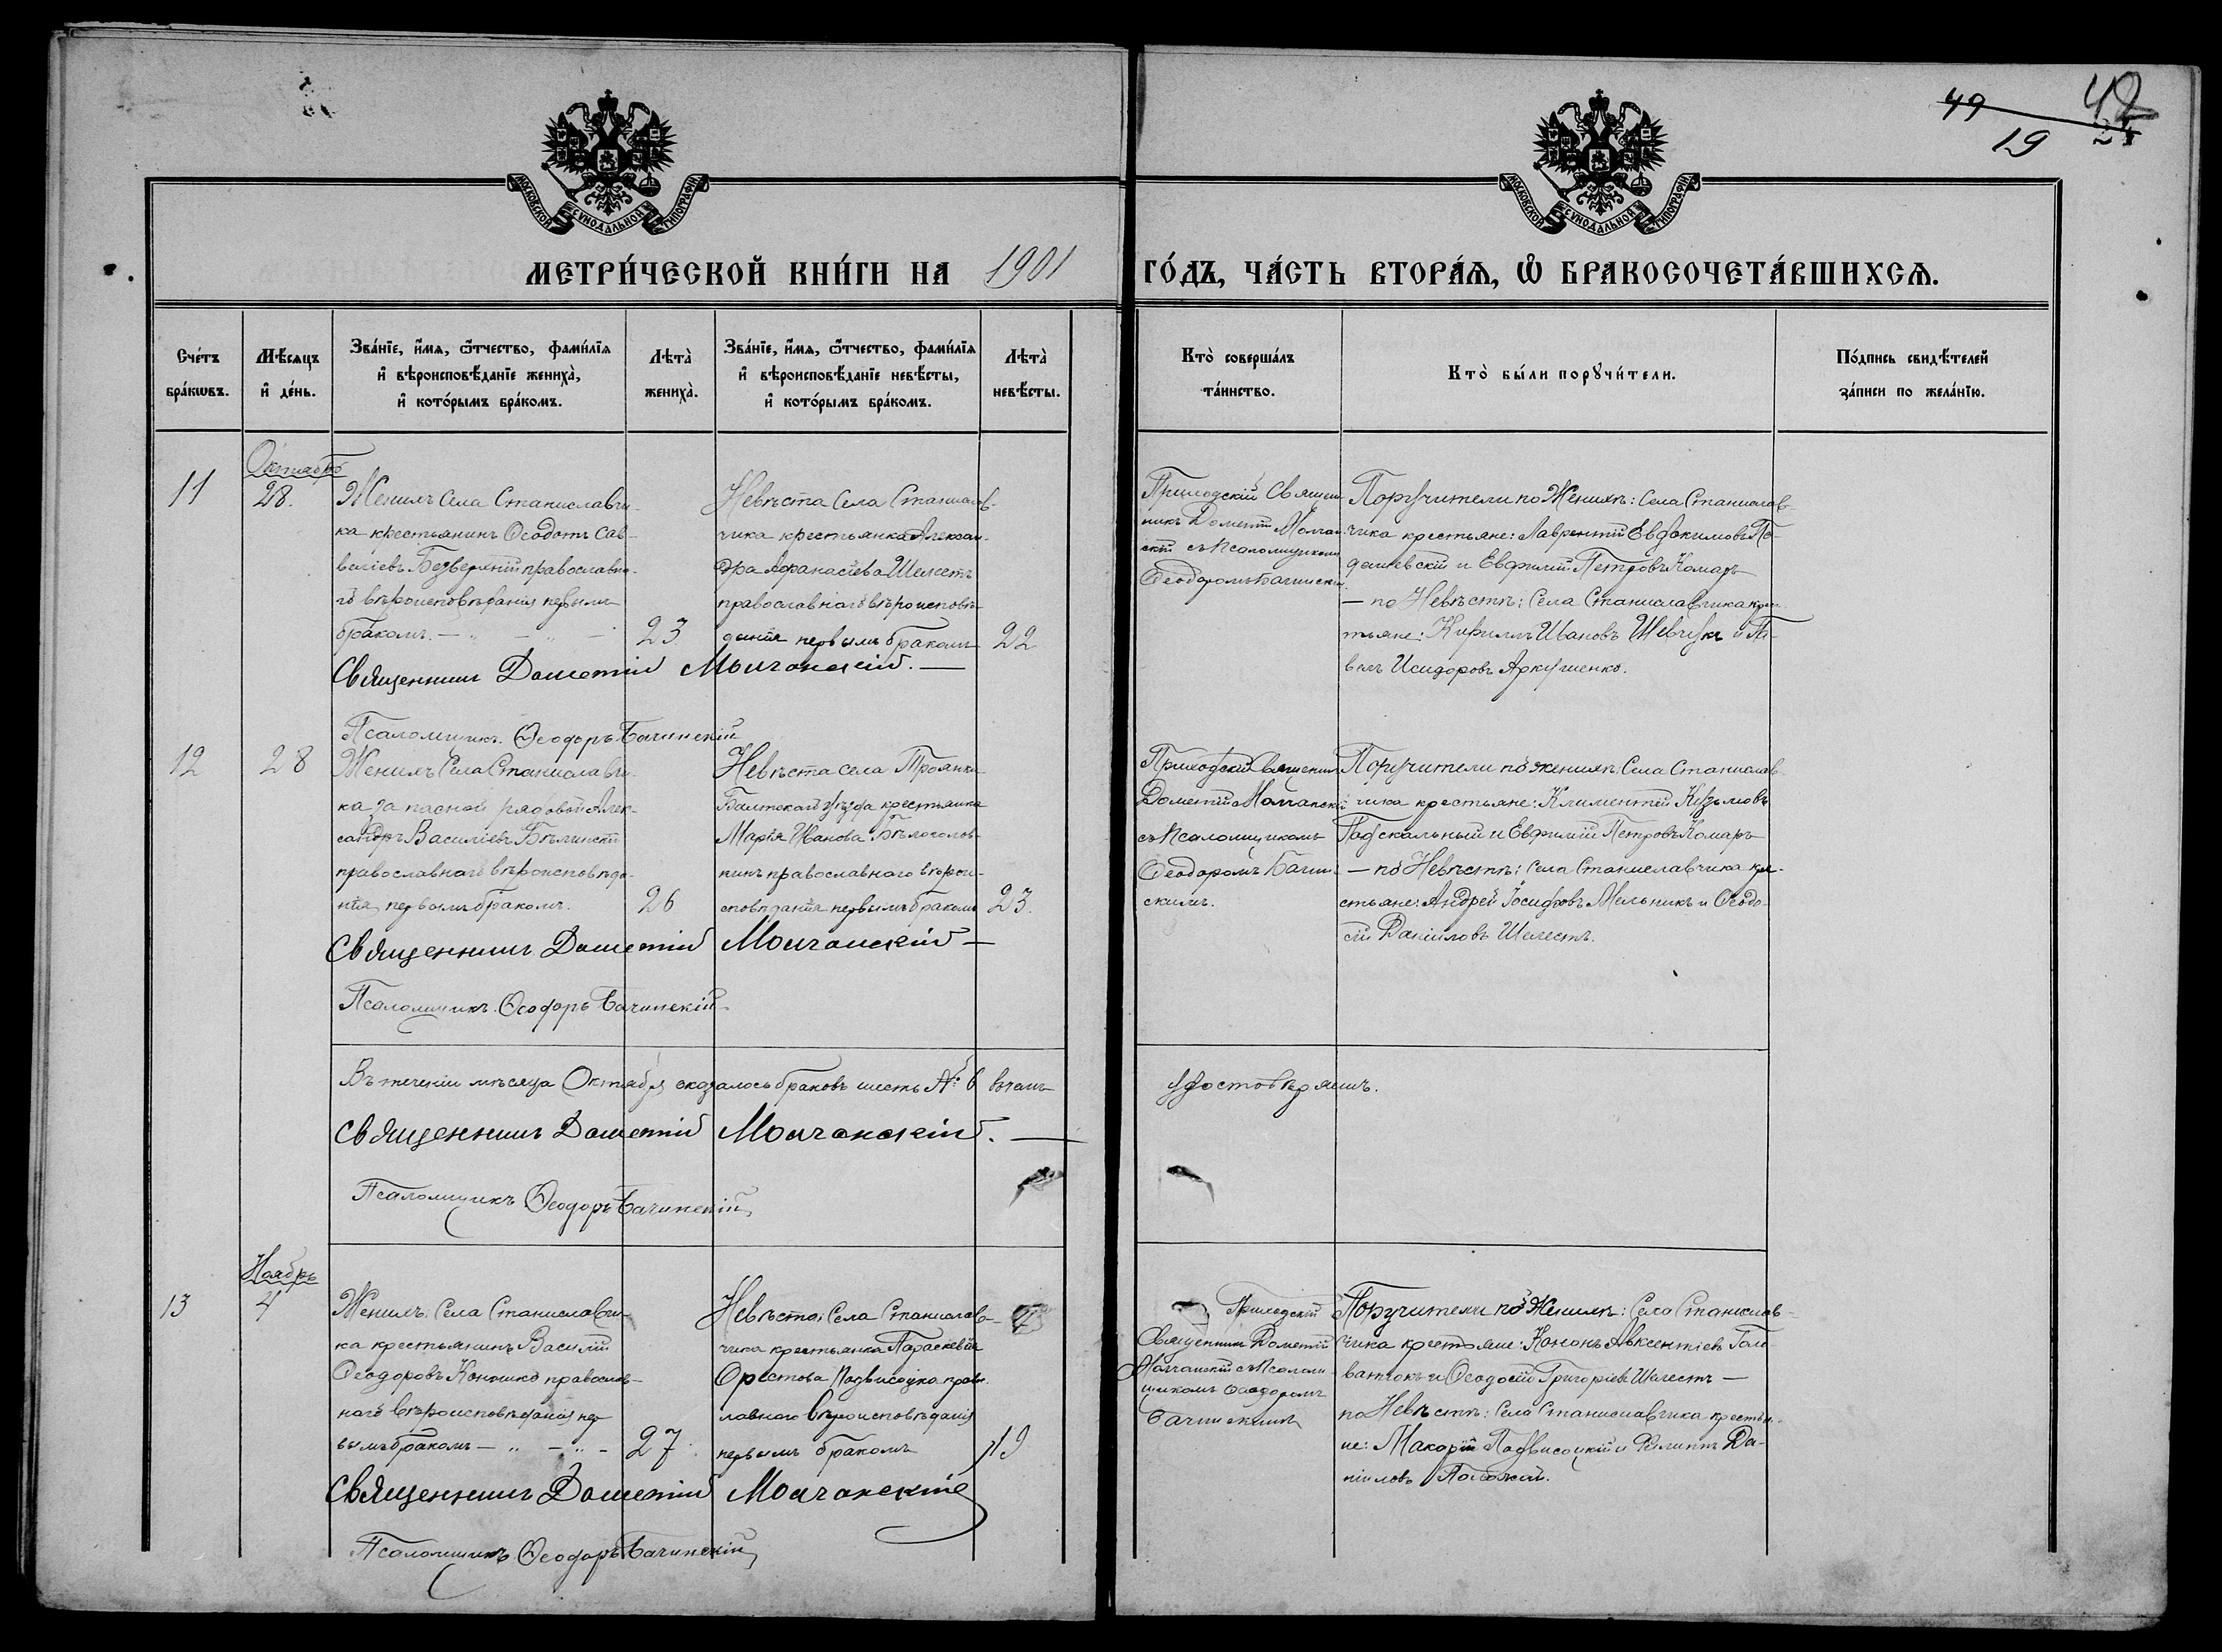 49
42
19
24
МОСКОВСКОЙ СУНОДАЛЬНОЙ ТИПОГРАФІИ
МОСКОВСКОЙ СУНОДАЛЬНОЙ ТИПОГРАФІИ
МЕТРИ́ЧЕСКОЙ КНИ́ГИ НА 1901 ГО́ДЪ, ЧА́СТЬ ВТОРА́Я, Ѡ БРАКОСОЧЕТА́ВШИХСЯ.
Сче́тъ
бра́кѡвъ.
Мѣ́сяцъ
и҆ де́нь.
Зва́нїе, и҆́мя, ѻ҆́тчество, фами́лїя
и҆ вѣроисповѣ́данїе жениха̀,
и҆ кото́рымъ бра́комъ.
Лѣта̀
жениха̀.
Зва́нїе, и҆́мя, ѻ҆́тчество, фами́лїя
и҆ вѣроисповѣ́данїе невѣ́сты,
и҆ кото́рымъ бра́комъ.
Лѣта̀
невѣ́сты.
Кто̀ соверша́лъ
та́инство.
Кто̀ бы́ли порꙋчи́тели.
По́дпись свидѣ́телей
за́писи по жела́нїю.
11
Октябрь
28.
Женихъ Села Станиславчи-
ка крестьянинъ Ѳеодотъ Сав-
веліевъ Безверхній православна-
го вѣроисповѣданія первымъ
бракомъ. — „ — „ —
23
Невѣста Села Станислав-
чика крестьянка Алексан-
дра Аѳанасіева Шелестъ
православнаго вѣроисповѣ-
данія первымъ бракомъ
22
Приходскій Священ-
никъ Дометій Молчан-
скій съ Псаломщикомъ
Ѳеодоромъ Бачинскимъ
Поручители по Женихѣ: Села Станислав-
чика крестьяне: Лаврентій Евдокимовъ
и Евфимій Петровъ Комаръ
— по Невѣстѣ: Села Станиславчика крес-
тьяне: Кириллъ Ивановъ Шевчукъ и Па-
велъ Исидоровъ Аркушенко.
Священникъ Дометій Молчанскій. —
Псаломщикъ. Ѳеодоръ Бачинскій
12
28
Женихъ Села Станиславчи-
ка запасной рядовой Алек-
сандръ Василіевъ Бѣлинскій
православнаго вѣроисповѣда-
нія первымъ бракомъ.
26
Невѣста Села Троянки
Балтскаго уѣзда крестьянка
Марія Иванова Бѣлоголов-
православнаго вѣрои-
сповѣданія первымъ бракомъ
23.
Приходскій Священникъ
Дометій Молчанскій
съ Псаломщикомъ
Ѳеодоромъ Бачин-
скимъ.
Поручители по женихѣ Села Станислав-
чика крестьяне: Климентій Кузьмовъ
Подскальный и Евфимій Петровъ Комаръ
— по Невѣстѣ: Села Станиславчика кре-
стьяне: Андрей Іосифовъ Мельникъ и Ѳеодо-
сій Даніиловъ Шелестъ.
Священникъ Дометій Молчанскій —
Псаломщикъ. Ѳеодоръ Бачинскій
Въ теченіи мѣсяца Октября оказалось браковъ шесть № 6 въ чемъ удостовѣряемъ.
Священникъ Дометій Молчанскій. —
Псаломщикъ Ѳеодоръ Бачинскій
13
Ноябрь
4
Женихъ: Села Станиславчи-
ка крестьянинъ Василій
Ѳеодоровъ православ-
наго вѣроисповѣданія пер-
вымъ бракомъ — „ — „ —
27.
Невѣста: Села Станислав-
чика крестьянка Параскевія
Орестова православ-
лавнаго вѣроисповѣданія
первымъ бракомъ
19
Приходскій
Священникъ Дометій
Молчанскій съ Псалом-
щикомъ Ѳеодоромъ
Бачинскимъ
Поручители по Женихѣ: Села Станислав-
чика крестьяне: Кононъ Авксентіевъ Голо-
и Ѳеодосій Григоріевъ Шелестъ —
по Невѣстѣ: Села Станиславчика крестья-
не: Макарій Подвисоцкій и Филиппъ Да-
ніиловъ
Священникъ Дометій Молчанскій
Псаломщикъ Ѳеодоръ Бачинскій